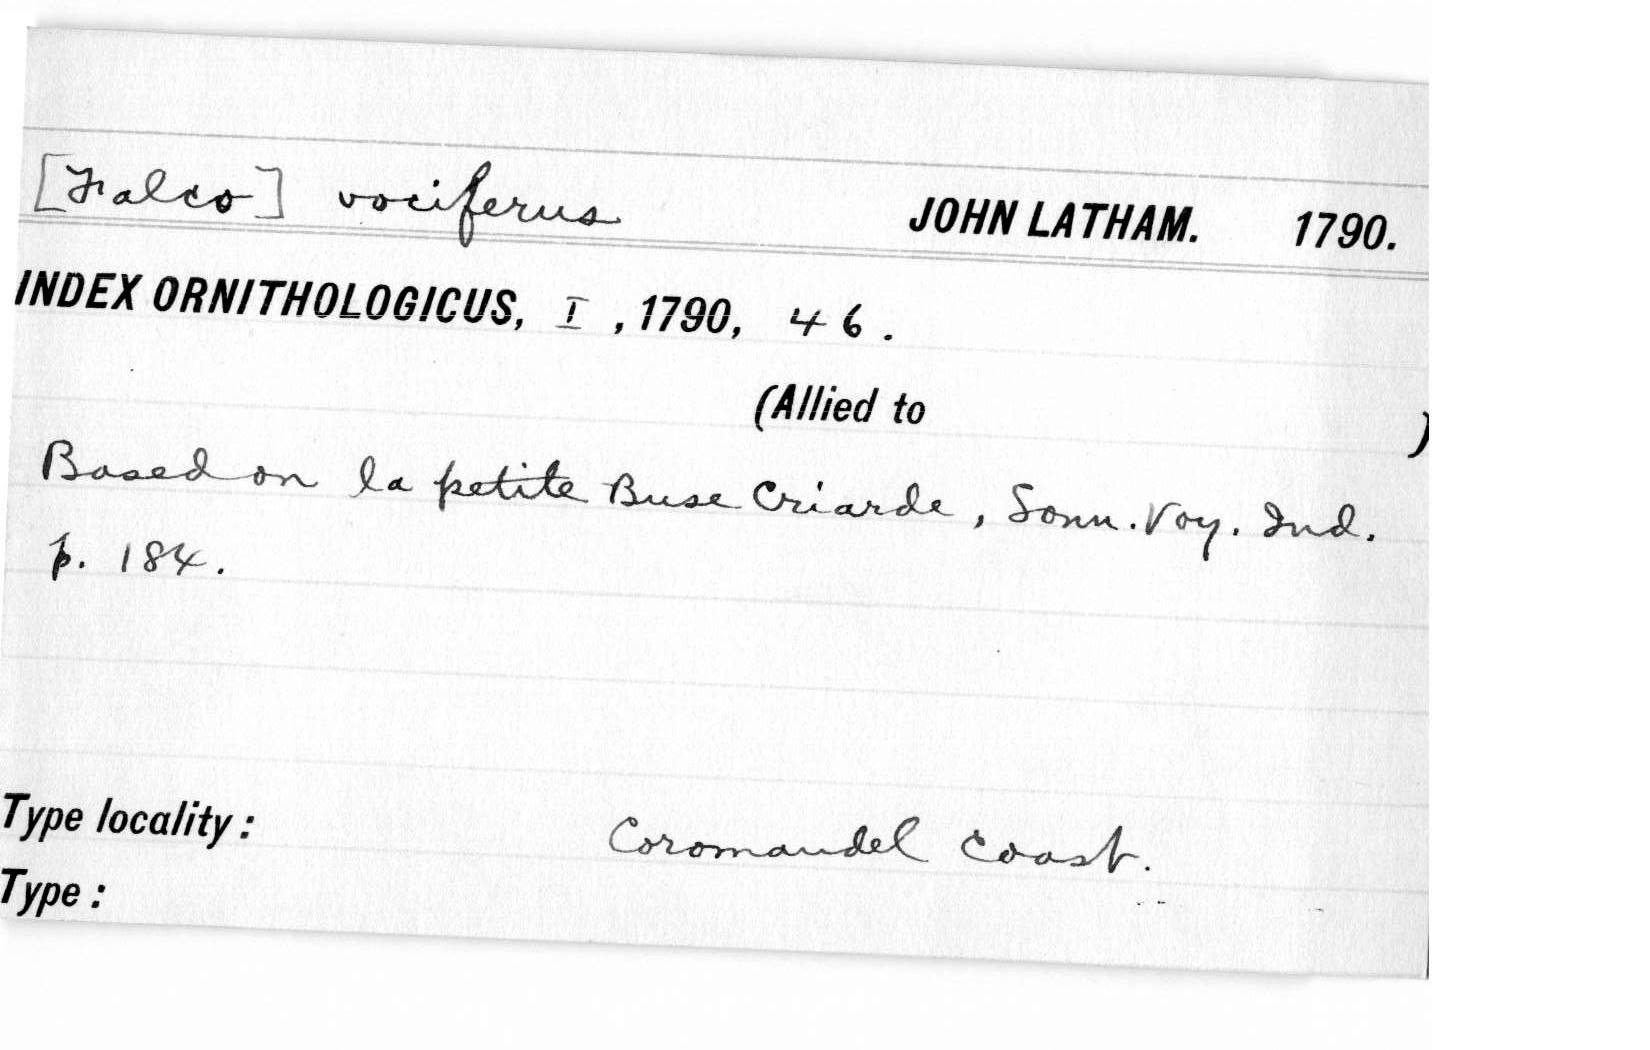 [Falco] vociferus JOHN LATHAM. 1790.
INDEX ORNITHOLOGICUS, I, 1790, 46.
(Allied to )
Based on la petite Buse Criarde, Sonn. Voy. Ind.
p. 184.
Type locality: Coromandel Coast.
Type: